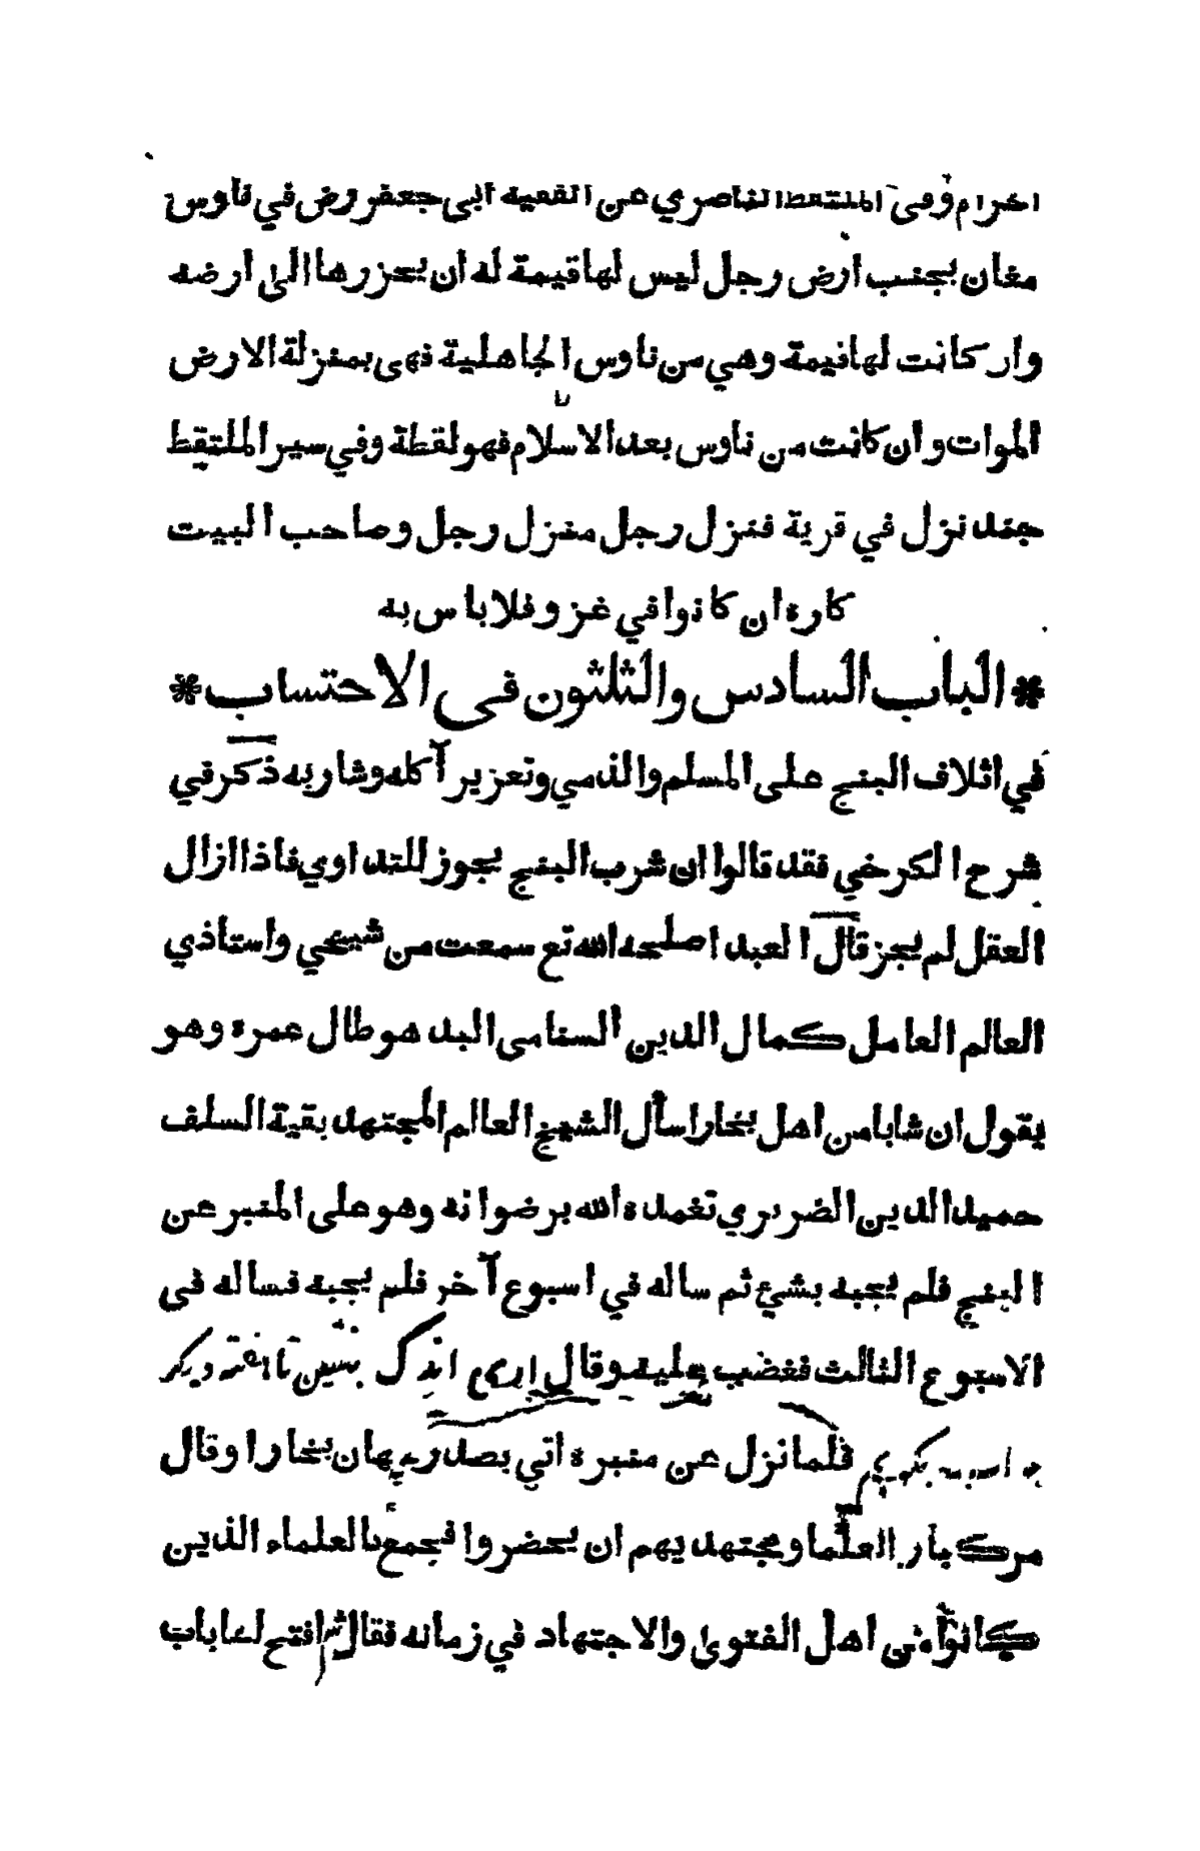 احرام وفى الملتقط الناصري عن الفقيه ابى جعفر رض في ناوس
مغان بجنب ارض رجل ليس لها قيمة له ان يحزرها الى ارضه
وار كانت لها نيمة وهي من ناوس الجاهلية فهى بمنزلة الارض
الموات وان كانت من ناوس بعد الاسلام فهو لقطة وفي سير الملتقط
جند نزل في قرية فنزل رجل منزل رجل وصاحب البيت
كاره ان كانوا في غزو فلا باس به
* الباب السادس والثلثون فى الاحتساب *
في اتلاف البنج على المسلم والذمي وتعزير آكله وشاربه ذكر في
شرح الكرخي فقد قالوا ان شرب البنج يجوز للتداوي فاذا ازال
العقل لم يجز قال العبد اصلحه الله تع سمعت من شيخي واستاذي
العالم العامل كمال الدين السنامى البدهو طال عمره وهو
يقول ان شابا من اهل بخارا سأل الشيخ العالم المجتهد بقية السلف
حميد الدين الضريري تغمده الله برضوانه وهو على المنبر عن
البنج فلم يجبه بشئ ثم ساله في اسبوع آخر فلم يجبه فساله فى
الاسبوع الثالث فغضب عليه وقال اندك بنشين تا هفته ديكر
فلما نزل عن منبره اتي بصدر جهان بخارا وقال
مر كبار العلما ومجتهديهم ان يحضروا فجمع العلماء الذين
كانوا من اهل الفتوى والاجتهاد في زمانه فقال افتح لعا باب